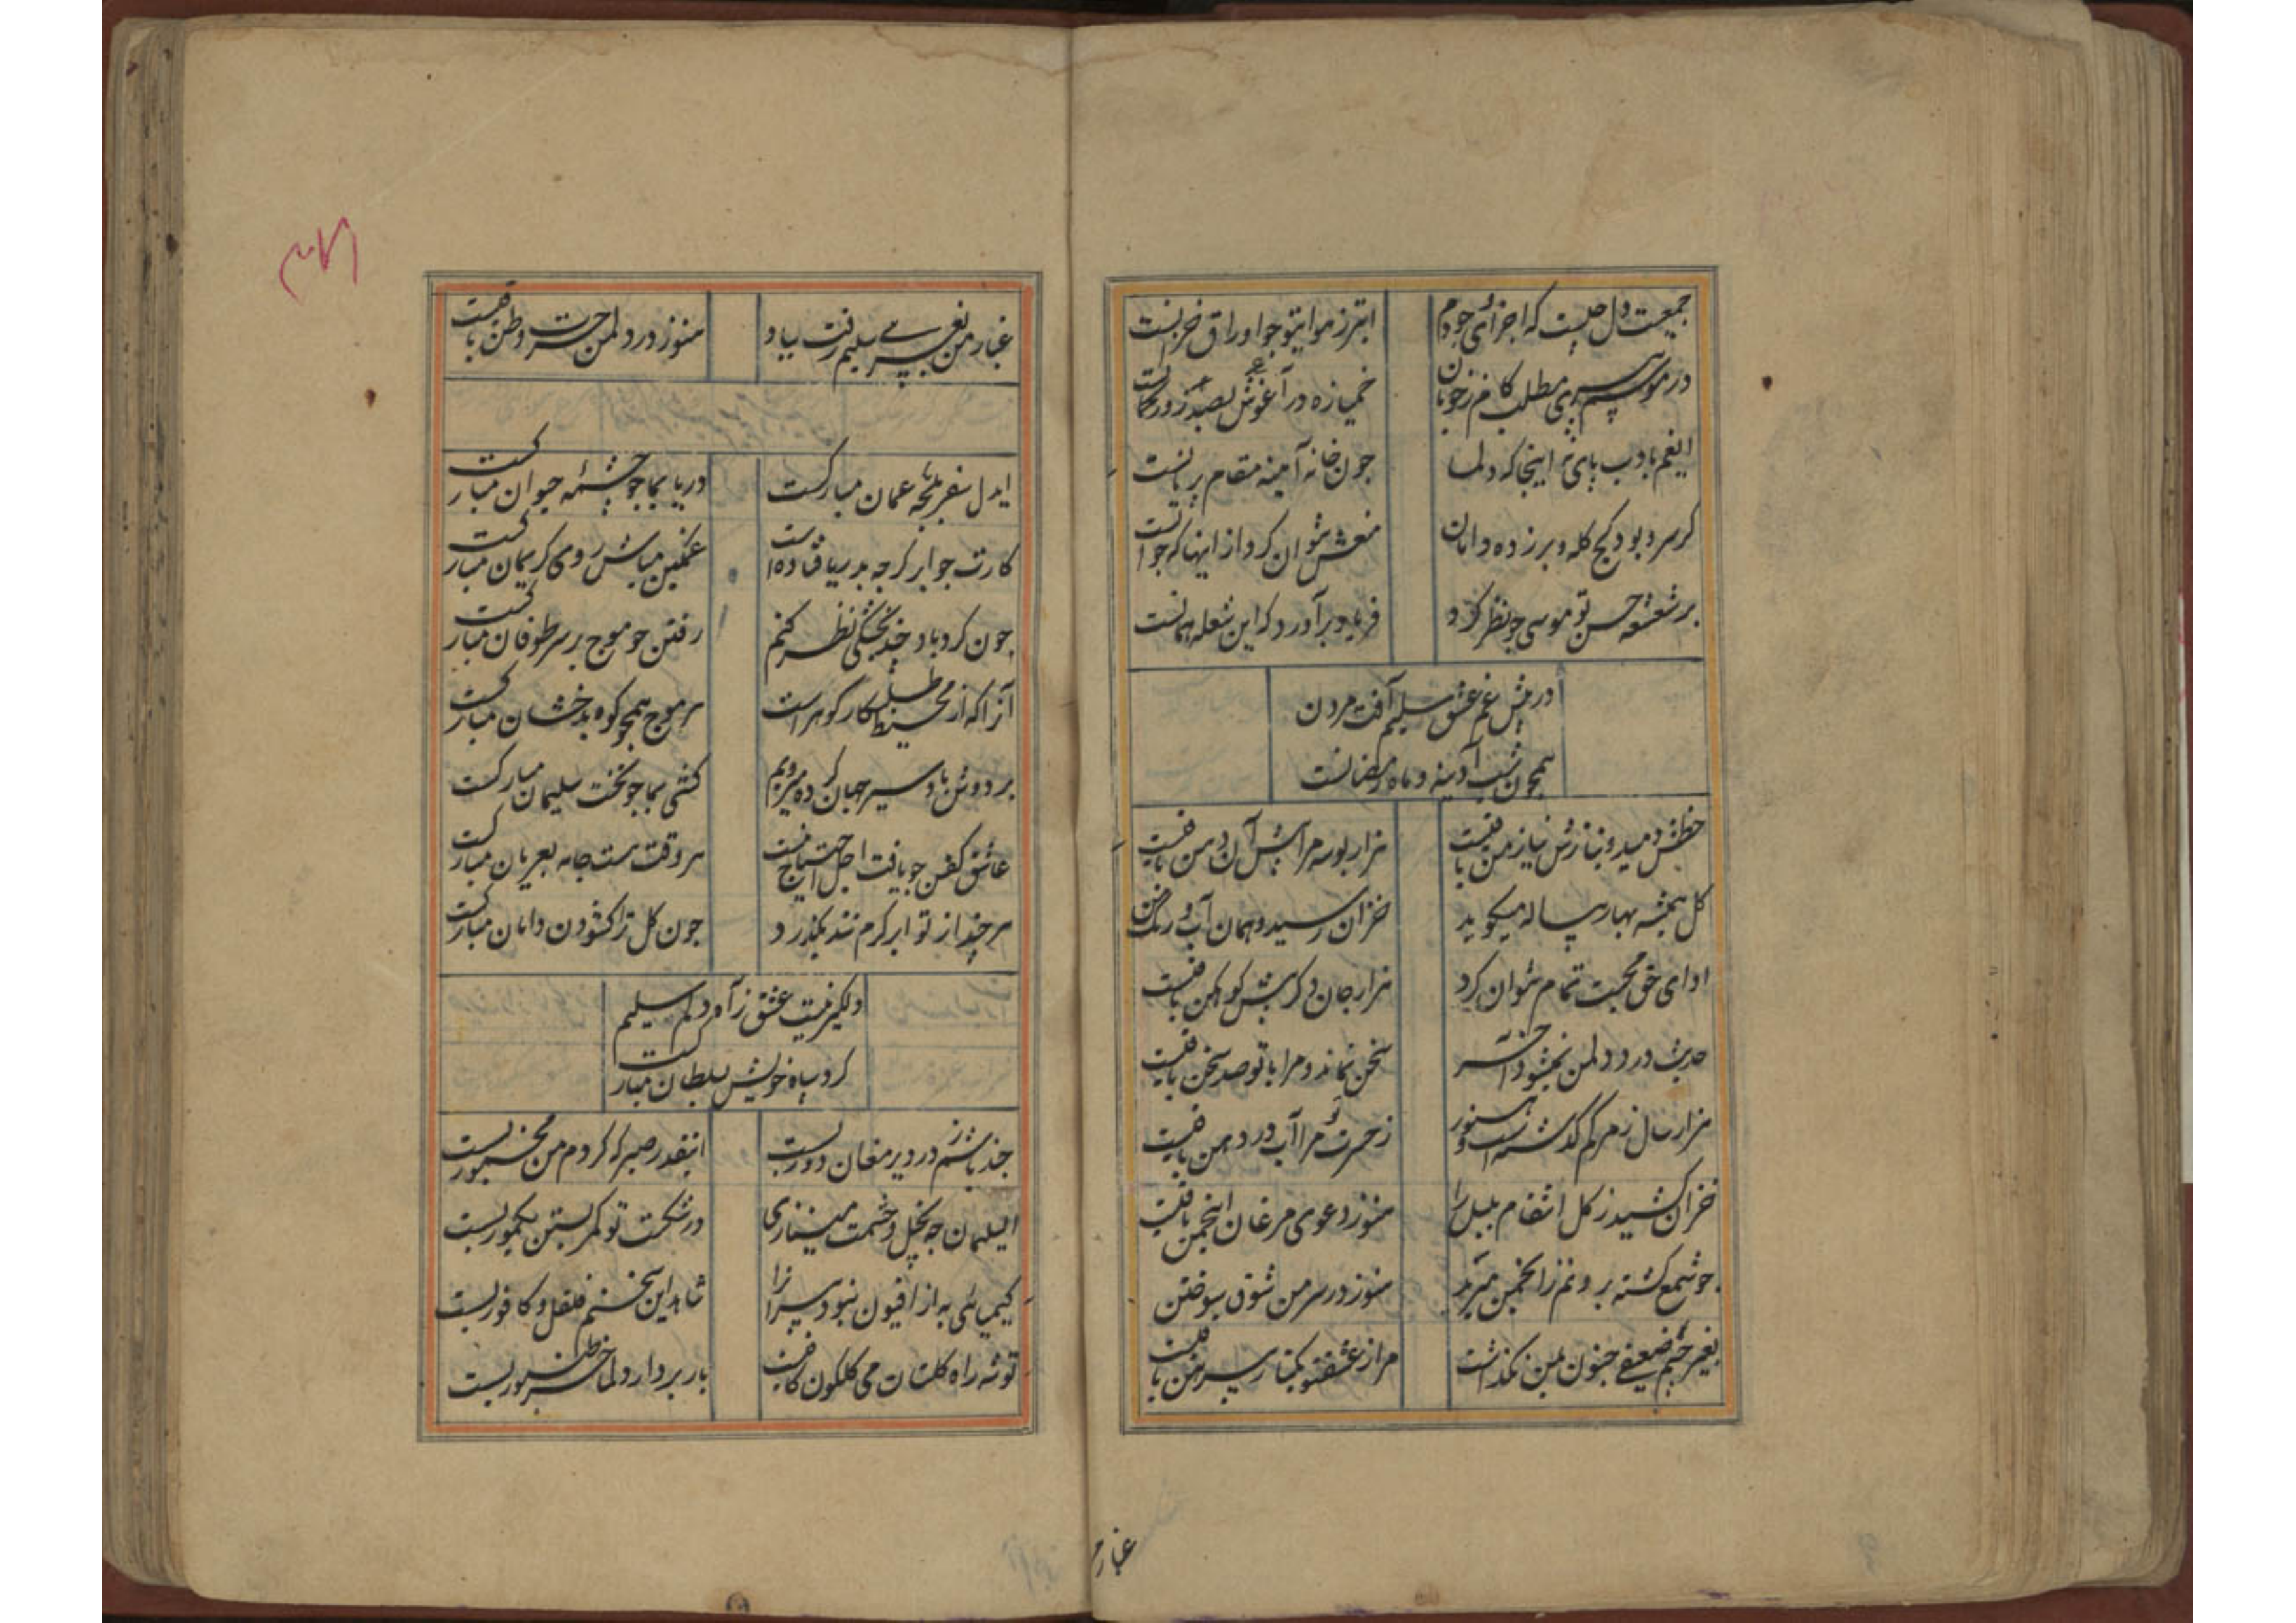 جمعیت دل چیست که اجزای وجودم
ابتر ز هوا بیتو چو اوراق خزانست
در موسم پیری مطلب کام ز خوبان
خمیازه در آغوش
ایغم بادب پای نه اینجا که دلما
چون خانه آیینه مقام پریانست
کر سر و بود کج کله و بر زده دامان
منعش نتوان کرد از اینها که جوانست
بر شعشعه حسن تو موسی چو نظر کرد
فریاد برآورد که این شعله همانست
در پیش غم عشق سلیم آفت مردن
همچون شب آدینه و ماه رمضانست
خطش دمید و بنازش نیاز من باقیست
هزار بوسه مرا پیش آن دهن باقیست
کل همیشه بهار پیاله میکوید
خزان رسید و همان آب و رنک
ادای حق محبت تمام نتوان کرد
هزار جان دکر پیش کوهکن باقیست
حدیث درد دل من نمیشود آخر
سخن نماند و مرا با تو صد سخن باقیست
هزار سال ز مرکم کذشته است و هنوز
ز حسرت تو مرا آب در دهن باقیست
خزان کشید ز کل انتقام بلبل را
هنوز دعوی مرغان انجمن باقیست
چو شمع کشته برونم ز انجمن مبرید
هنوز در سر من شوق سوختن
بغیر چشم ضعیفی جنون بمن نکذاشت
مرا ز عشق تو یکتار پیرهن باقیست
غبار من
غبار من بغریبی سلیم رفت بباد
هنوز در دل من حسرت وطن باقیست
ایدل سفر بلجه عمان مبارکست
دریا بما چو چشمه حیوان مبارکست
کارت چو ابر کرچه بدریا فتاده است
غمکین مباش روی کریمان مبارکست
چون کردباد چند بخشکی نظر کنم
رفتن چو موج بر سر طوفان مبارکست
آنرا که از محیط طلبکار کوهر است
هر موج همچو کوه بدخشان مبارکست
بر دوش باد سیر جهان کرده میرویم
کشتی بما چو تخت سلیمان مبارکست
عاشق کفن چو یافت اجل احتیاج نیست
هر وقت هست جامه بعریان مبارکست
هر چند از تو ابر کرم تند بکذرد
چون کل ترا کشودن دامان مبارکست
دلکیر نیست عشق ز آه دلم سلیم
کرد سپاه خویش بسلطان مبارکست
چند باشم ز در دیر مغان دور بست
اینقدر صبر که کردم من مخمور بست
ای سلیمان چه بخیل و حشمت مینازی
در شکست تو کمر بستن یکمور بست
کیمیائی به از افیون نبود پیران را
شاهد این سخنم فلفل و کافور بست
توشه راه کلستان می کلکون کافیست
بار بردار دلما خر طنبور بست